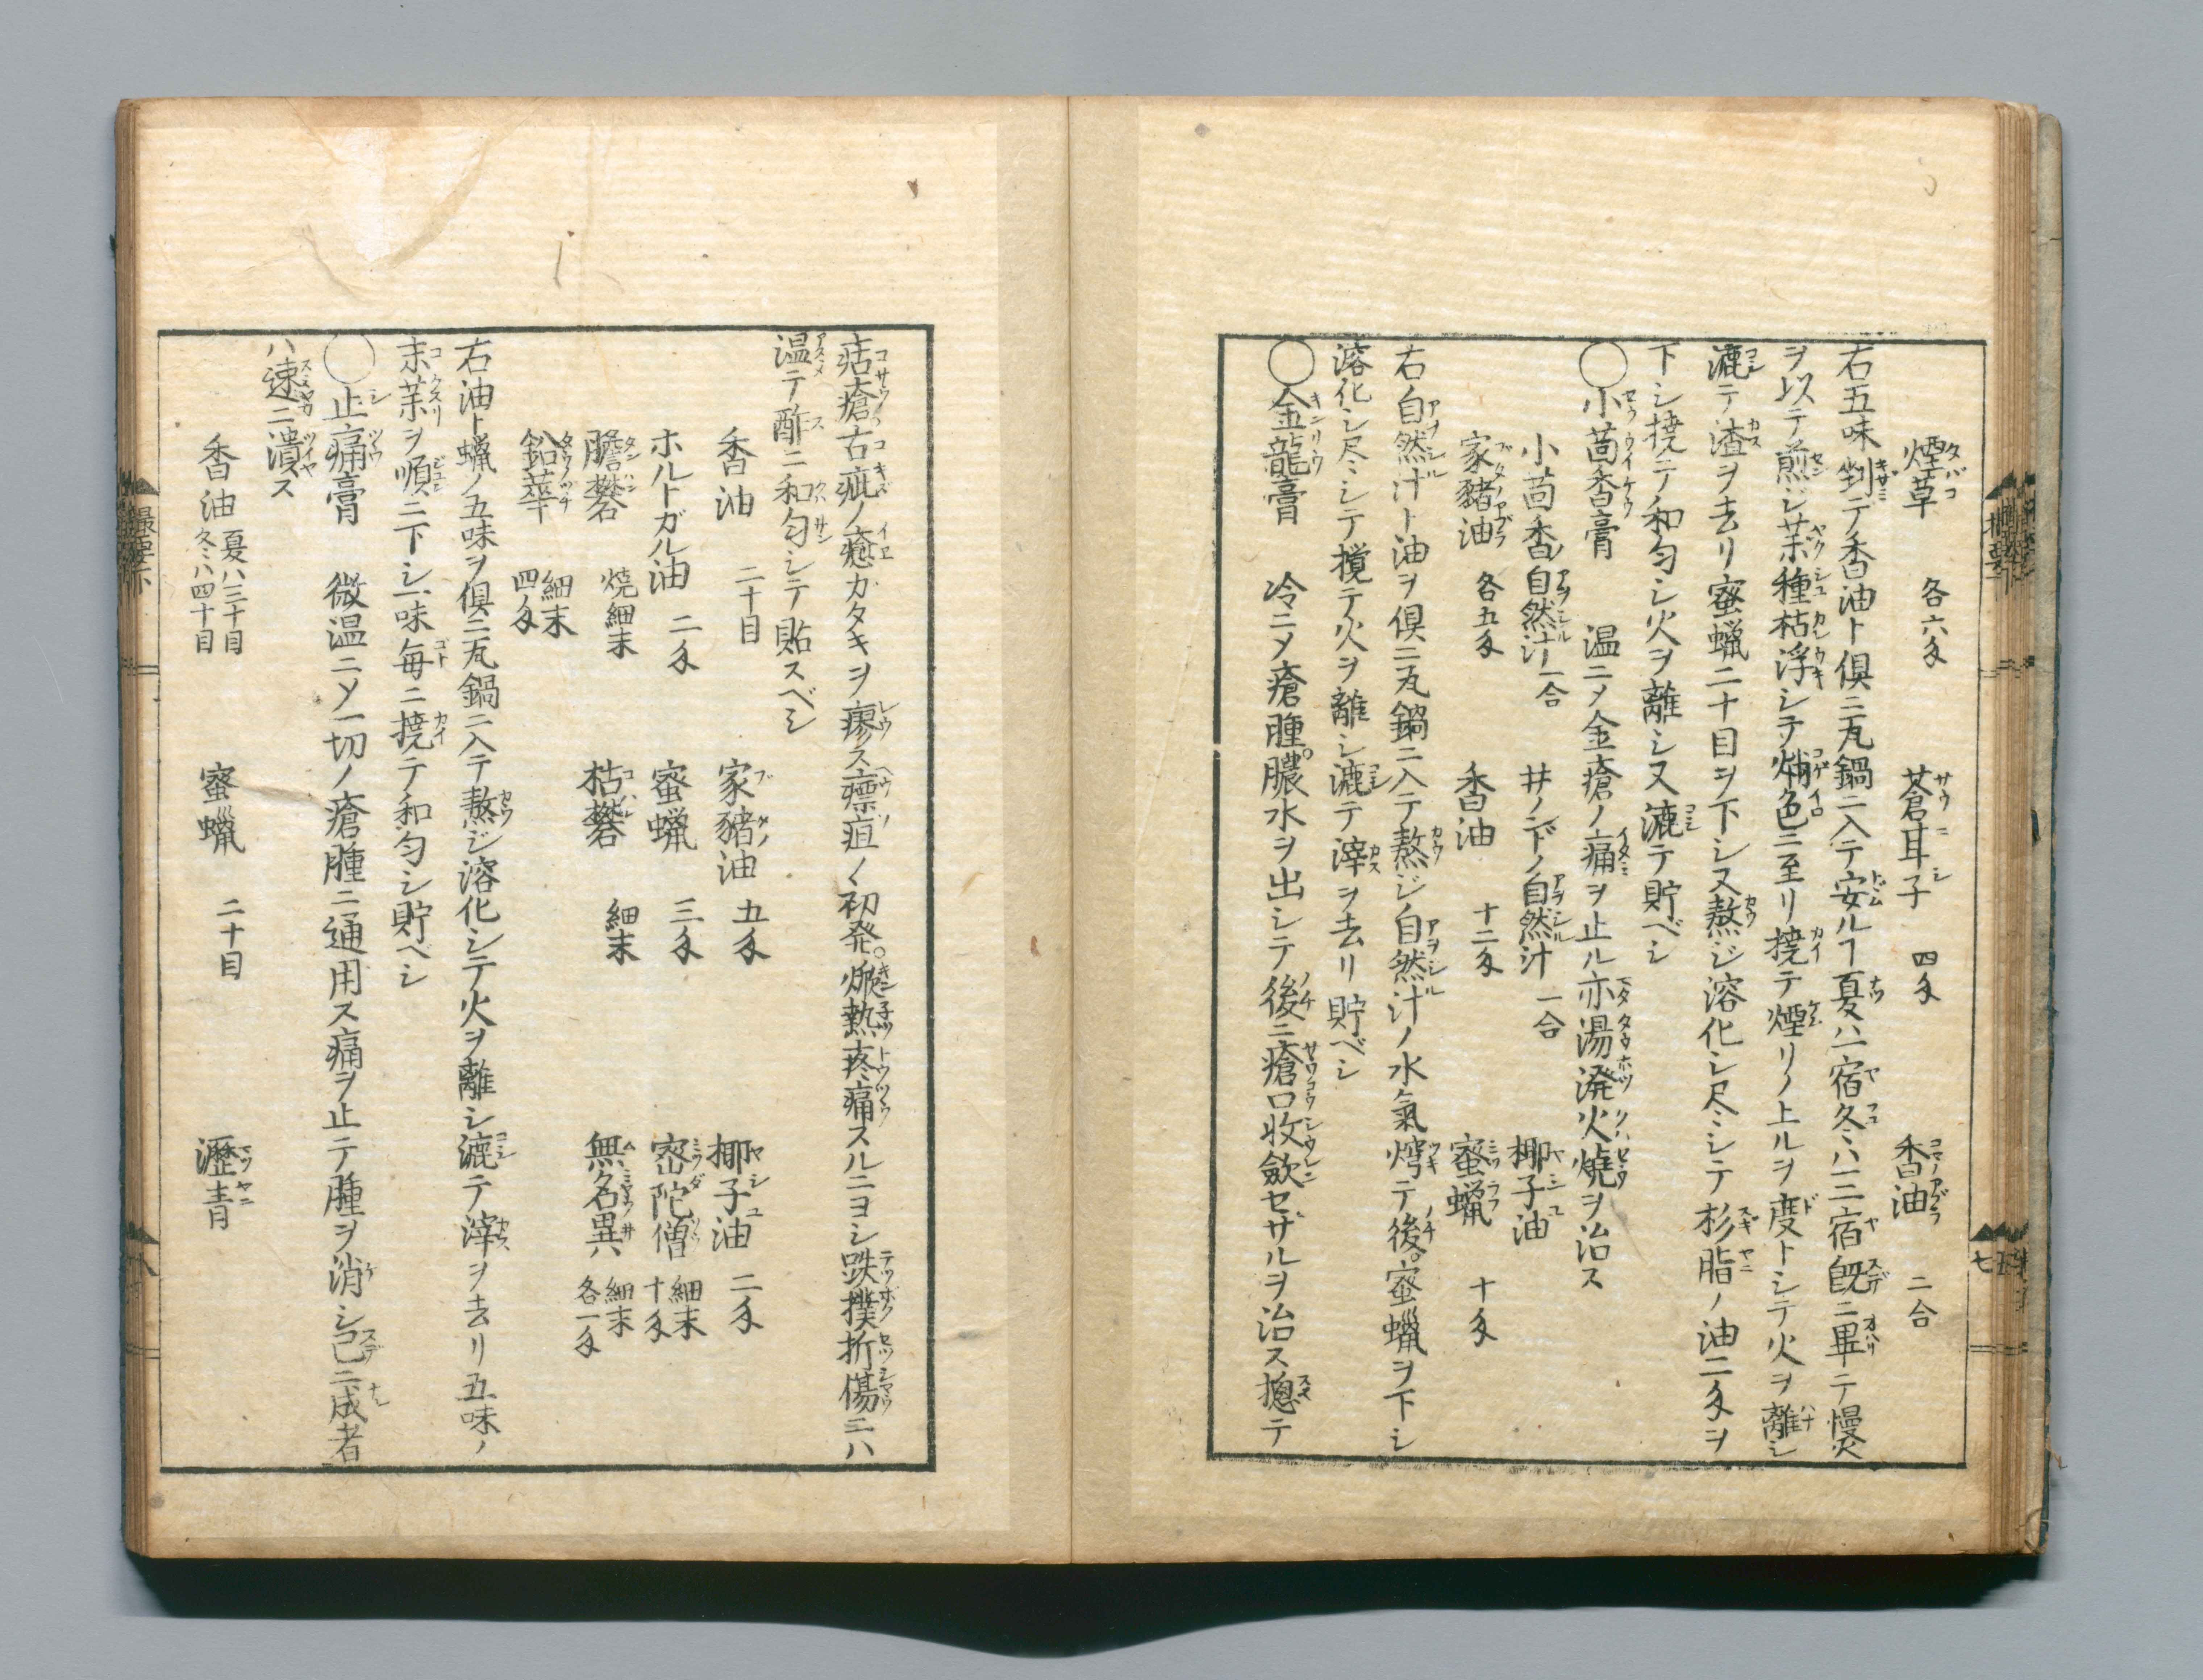 煙草 各六匁 蒼耳子 四匁 香油 二合
右五味剉テ香油ト倶ニ瓦鍋ニ入テ安ルヿ夏ハ一宿冬ハ三宿既ニ畢テ慢火
ヲ以テ煎ジ薬種枯浮シテ焔色ニ至リ撓テ煙リノ上ルヲ度トシテ火ヲ離シ
漉テ渣ヲ去リ蜜蝋二十目ヲ下シ又熬ジ溶化シ尽シテ杉脂ノ油二匁ヲ
下シ撓テ和匀シ火ヲ離シ又漉テ貯ベシ
◯小茴香膏 温ニメ金瘡ノ痛ヲ止ル亦湯溌火焼ヲ治ス
小茴香ノ自然汁 一合 井ノシドノ自然汁 一合 椰子油
家豬油 各五匁 香油 十二匁 蜜蝋 十匁
右自然汁ト油ヲ倶ニ瓦鍋ニ入テ熬ジ自然汁ノ水氣竭テ後蜜蝋ヲ下シ
溶化シ尽シテ撹テ火ヲ離シ漉テ滓ヲ去リ貯ベシ
◯金龍膏 冷ニメ瘡腫膿水ヲ出シテ後ニ瘡口收歛セザルヲ治ス摠テ
痼瘡古疵ノ癒カタキヲ療ス瘭疽ノ初発焮熱疼痛スルニヨシ跌撲折傷ニハ
温テ酢ニ和匀シテ貼スベシ
香油 二十目 家豬油 五匁 椰子油 二匁
ホルトガル油 二匁 蜜蝋 三匁 密陀僧 細末十匁
膽礬 焼細末 枯礬 細末 無名異 細末各一匁
鉛華 細末四匁
右油ト蝋ノ五味ヲ倶ニ瓦鍋ニ入テ熬ジ溶化シテ火ヲ離シ漉テ滓ヲ去リ五味ノ
末薬ヲ順ニ下シ一味毎ニ撓テ和匀シ貯ベシ
◯止痛膏 微温ニメ一切ノ瘡腫ニ通用ス痛ヲ止テ腫ヲ消シ已ニ成者
ハ速ニ潰ス
香油 夏ハ三十目冬ハ四十目 蜜蝋 二十目 瀝青